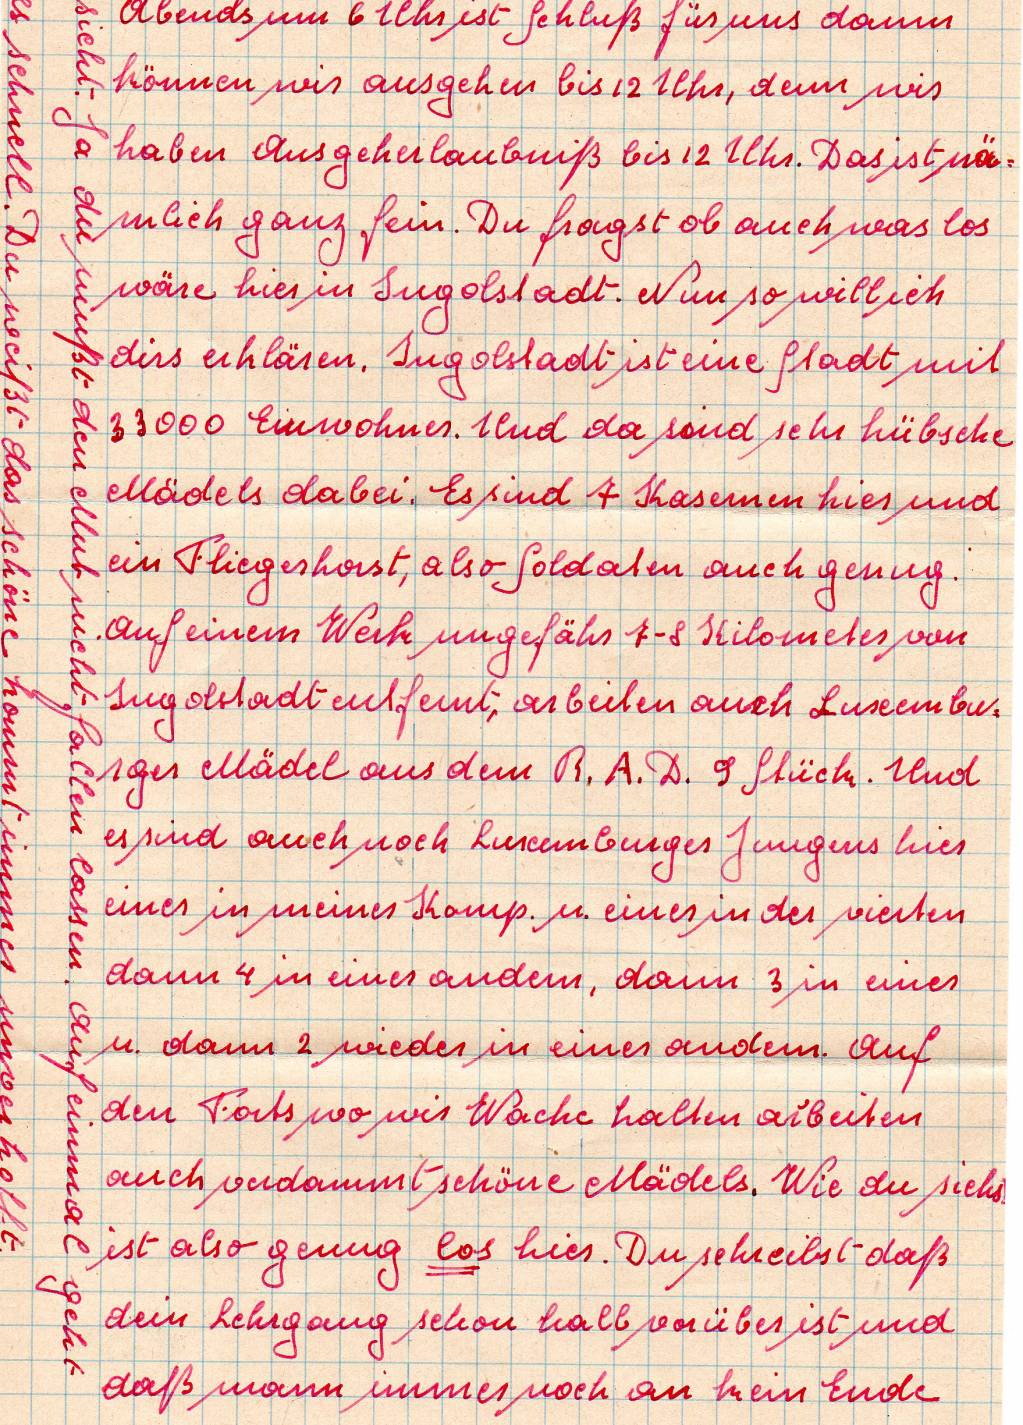 Abends um 6 Uhr ist Schluß für uns dann
können wir ausgehen bis 12 Uhr, denn wir
haben Ausgeherlaubniß bis 12 Uhr. Das ist nä-
mlich ganz fein. Du fragst ob auch was los
wäre hier in Ingolstadt. Nun so will ich
dirs erklären. Ingolstadt ist eine Stadt mit
33000 Einwohner. Und da sind sehr hübsche
Mädels dabei. Es sind 7 Kasernen hier und
ein Fliegerhorst, also Soldaten auch genug.
Auf einem Werk ungefähr 7-8 Kilometer von
Ingolstadt entfernt, arbeiten auch Luxembu-
rger Mädel aus dem R. A. D. 9 Stück. Und
es sind auch noch Luxemburger Jungens hier
einer in meiner Komp. u. einer in der vierten
dann 4 in einer andern, dann 3 in einer
u. dann 2 wieder in einer andern. Auf
den Forts wo wir Wache halten arbeiten
auch verdammt schöne Mädels. Wie du siehs
ist also genug los hier. Du schreibst daß
dein Lehrgang schon halb vorüber ist und
daß mann immer noch an kein Ende
sieht. Ja du mußt den Mut nicht fallen lassen. Auf einmal geht
es schnell. Du weißt das schöne kommt immer unverhofft.